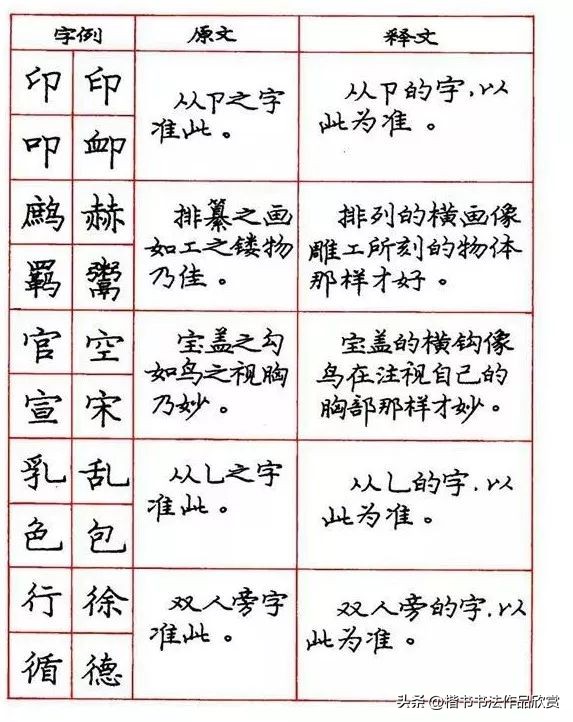 字例 原文 释文
印 印
叩 卹
从卩之字
准此。
从卩的字,以
此为准。
鹧 赫
羁 鬻
排纂之画
如工之镂物
乃佳。
排列的横画像
雕工所刻的物体
那样才好。
官 空
宣 宋
宝盖之勾
如鸟之视胸
乃妙。
宝盖的横钩像
鸟在注视自己的
胸部那样才妙。
乳 乱
色 包
从乚之字
准此。
从乚的字,以
此为准。
行 徐
循 德
双人旁字
准此。
双人旁的字,以
此为准。
头条 @楷书书法作品欣赏